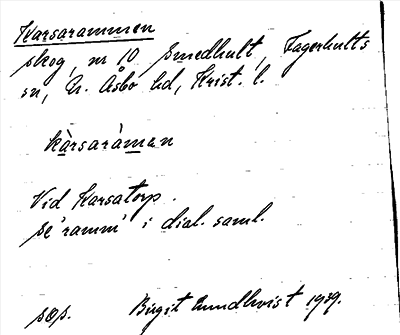 Karsarammen
skog, nr 10 Smedhult, Fagerhults
sn, N. Åsbo hd, Krist. l.
kàrsaràmen
Vid Karsatorp.
se 'ramm' i dial. saml.
Birgit Sundkvist 1939.